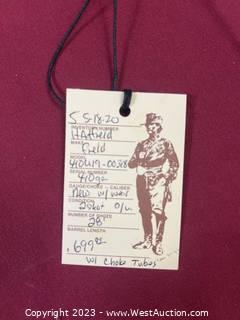 5 5-18-20
INVENTORY NUMBER
HAtfield
MAKE
Field
MODEL
410U19-00318
SERIAL NUMBER
410ga
GAUGE/CHOKE - CALIBER
New w/ wear
CONDITION
2shot O/u
NUMBER OF SHOTS
28"
BARREL LENGTH
.699.95
w/ Choke Tubes
Copyright © 2023 - www.WestAuction.com